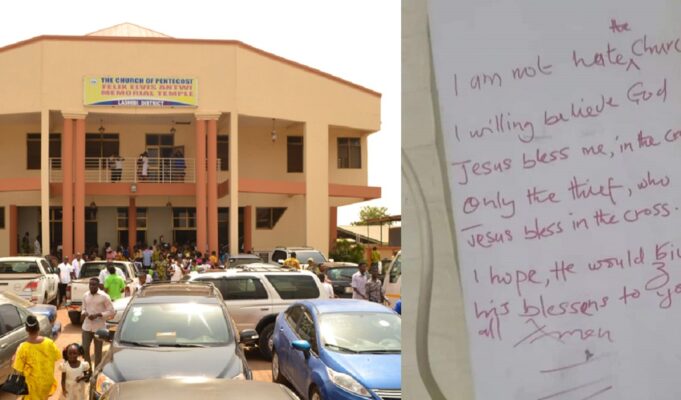 THE CHURCH OF PENTECOST
FELIX ELVIS ANTWI
MEMORIAL TEMPLE
LASHIBI DISTRICT
I am not hate the Churc
I willing believe God
Jesus bless me, in the cro
Only the thief, who
Jesus bless in the cross.
I hope, He would
his blessens to yo
all Amen